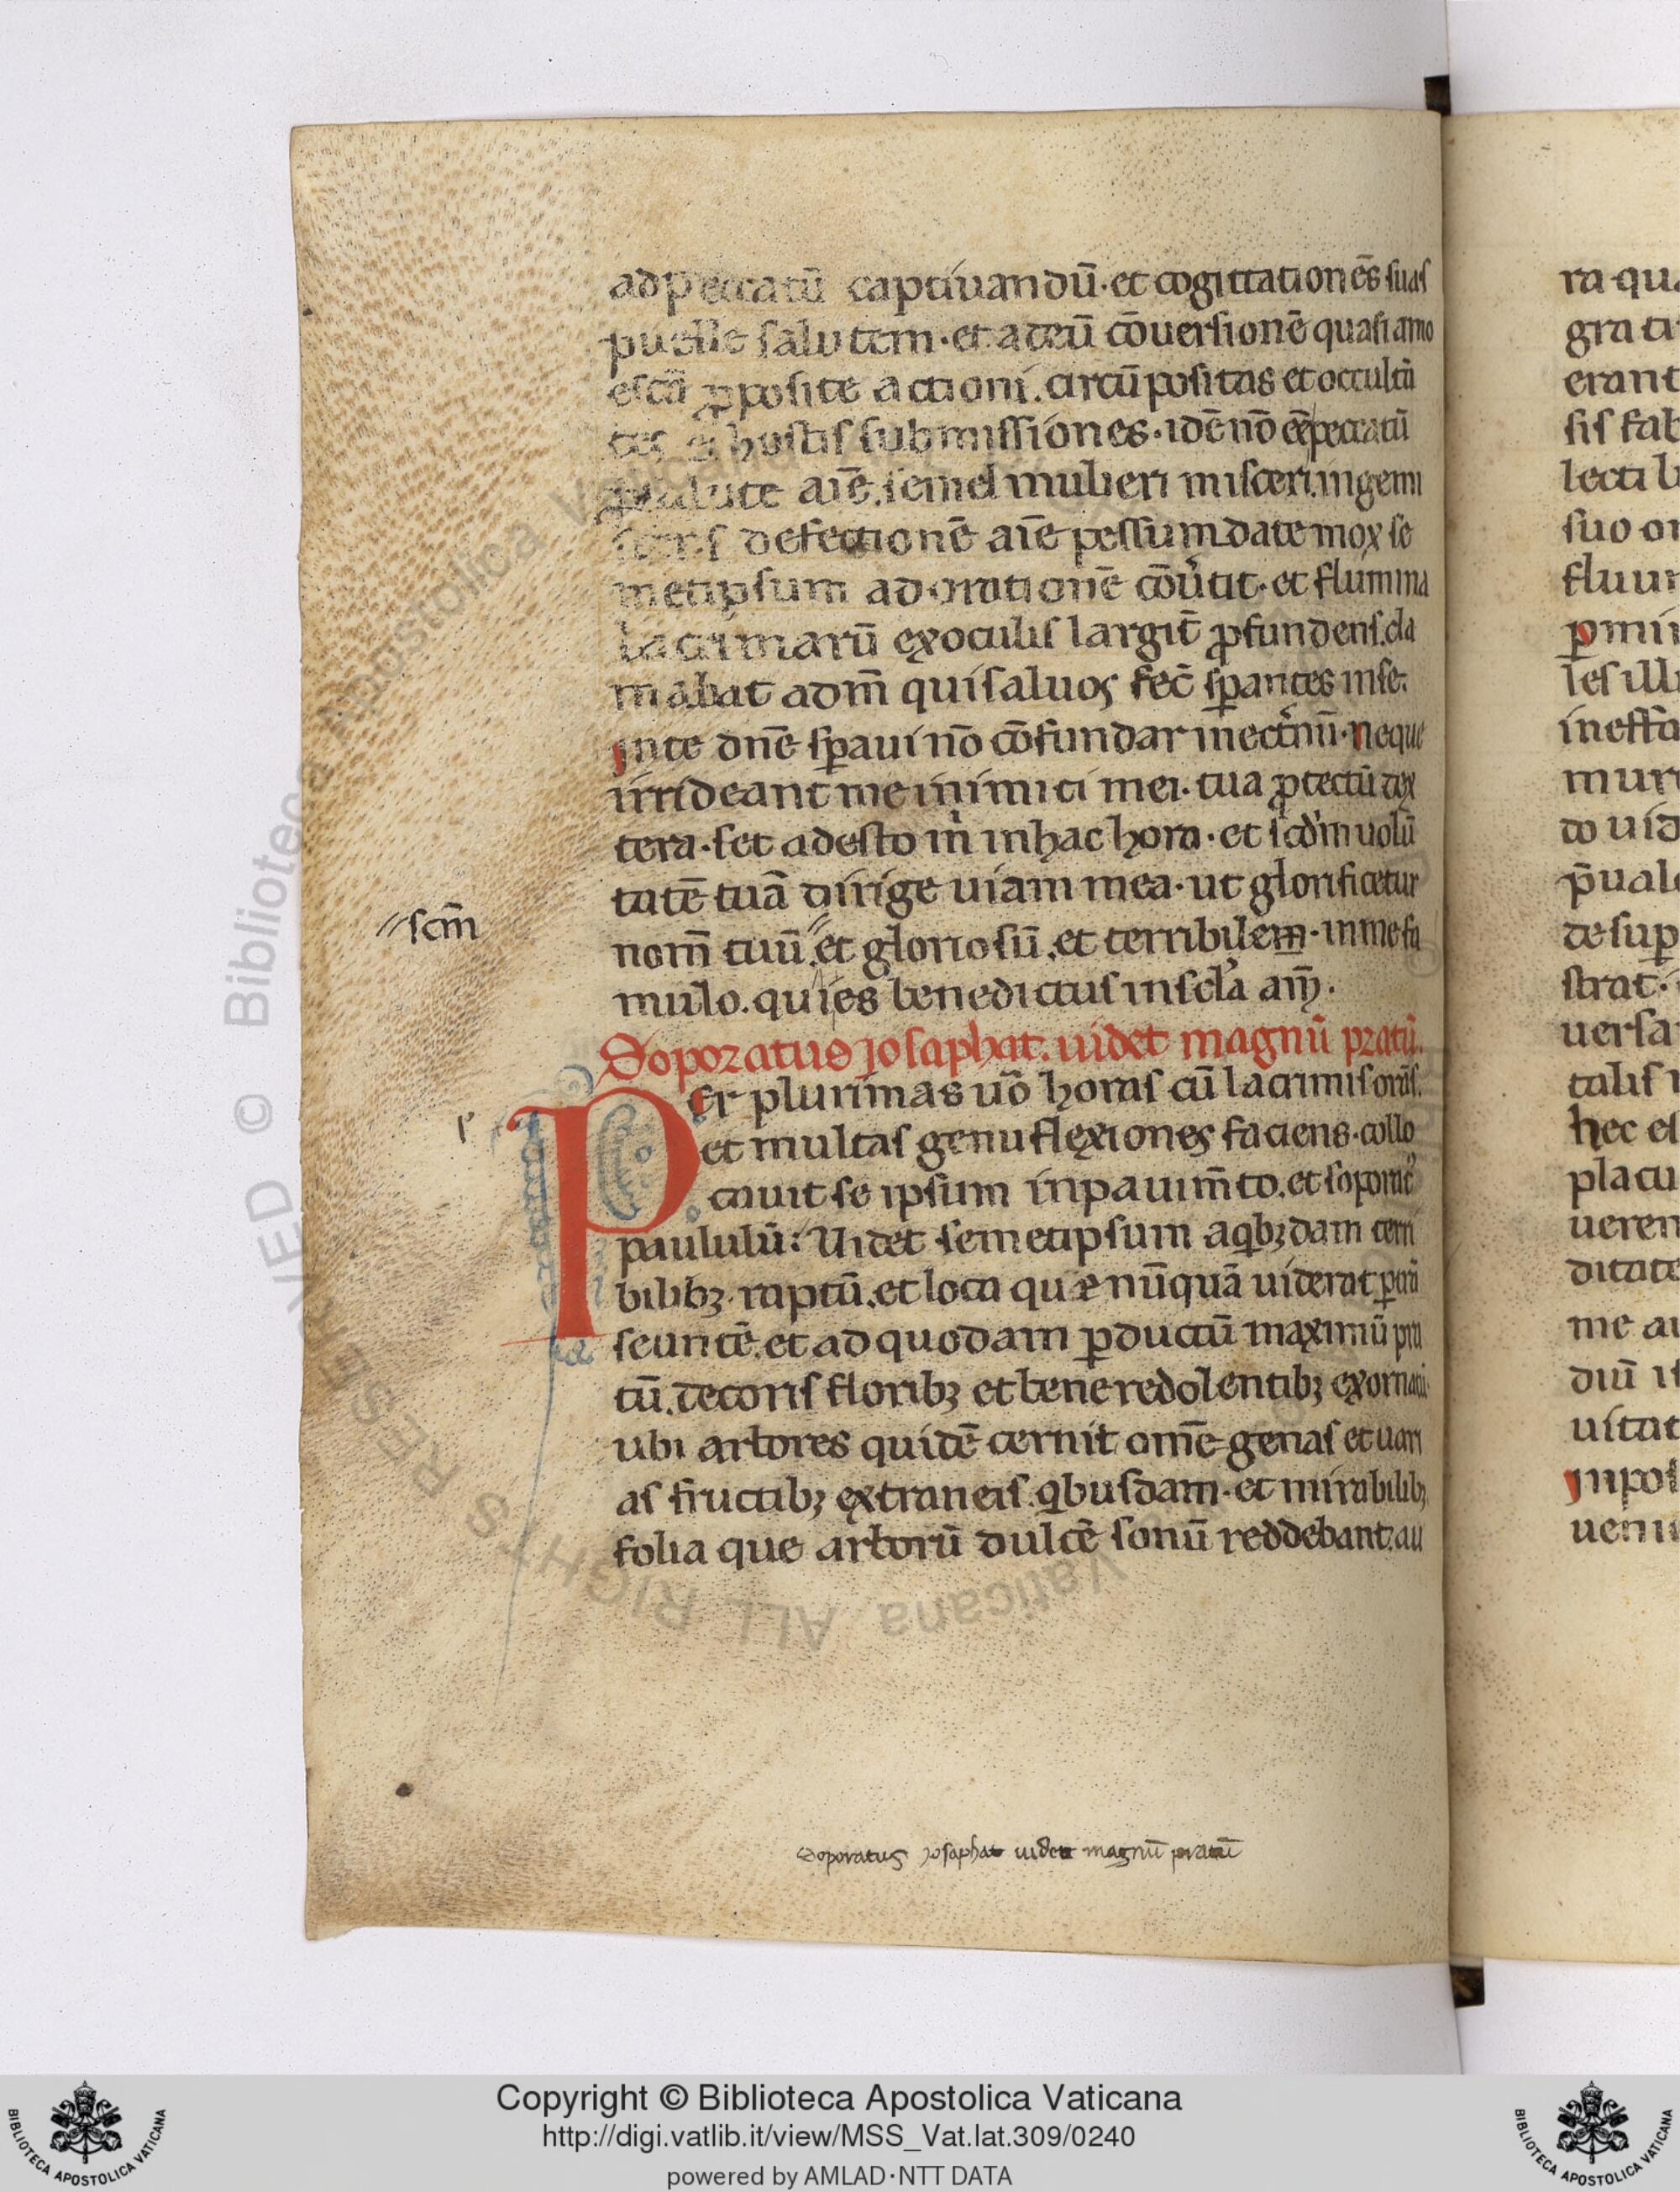 ad peccatū captiuandū· et cogittationēs suas
puelle salutem· et a deū cōuersionē quasi amo
escā ꝓposite actioni. circūpositas et occultā
tes hostis submissiones· idē nō eē peccatū
salute aīe. semel mulieri misceri. ingemi
defectionē aīe pessumdate mox se
metipsum ad orationē cōu͛tit· et flumina
lacrimarū ex oculis largit̄ ꝓfundens. cla
mabat ad m̄ qui saluos fec̄ sꝑantes in se.
inte dn̄e sꝑaui nō cōfundar in et͛nū· neque
irrideant me inimici mei· tua ꝓtectū dex
tera· set adesto m̍ in hac hora· et scd̓m uolū
tatē tuā dirige uiam mea· ut glorificetur
//scm̄
nom̄ tuū.//et gloriosū. et terribilem· in me fa
mulo. qui es benedictus in scl̓a am̄·
Soporatus josaphat. uidet magnū pratū.
Per plurimas uō horas cū lacrimis orās.
p
et multas genuflexiones faciens· collo
cauit se ipsum in pauim̄to. et soporatꝰ
paululū: Uidet semetipsum a qͥbꝫdam terri
bilibꝫ· raptū. et loca que nūquā uiderat ꝑtrā
seuntē. et ad quodam ꝑductū maximū pra
tū. decoris floribꝫ et bene redolentibꝫ exornatū
ubi arbores quidē cernit om̄e genas et uari
as fructibꝫ extraneis. qͥbusdam· et mirabilibꝫ
folia que arborū dulcē sonū reddebant. au
Soporatus josaphat uidet magnū pratū
ra· qua
erant
sis fab
suo
ples
uersa
talis
hec
placu
ditate
me
diū
uitat
inpos
Copyright © Biblioteca Apostolica Vaticana
http://digi.vatlib.it/view/MSS_Vat.lat.309/0240
powered by AMLAD·NTT DATA
BIBLIOTECA APOSTOLICA VATICANA
BIBLIOTECA APOSTOLICA VATICANA
© Biblioteca Apostolica Vaticana ALL RIGHTS RESERVED